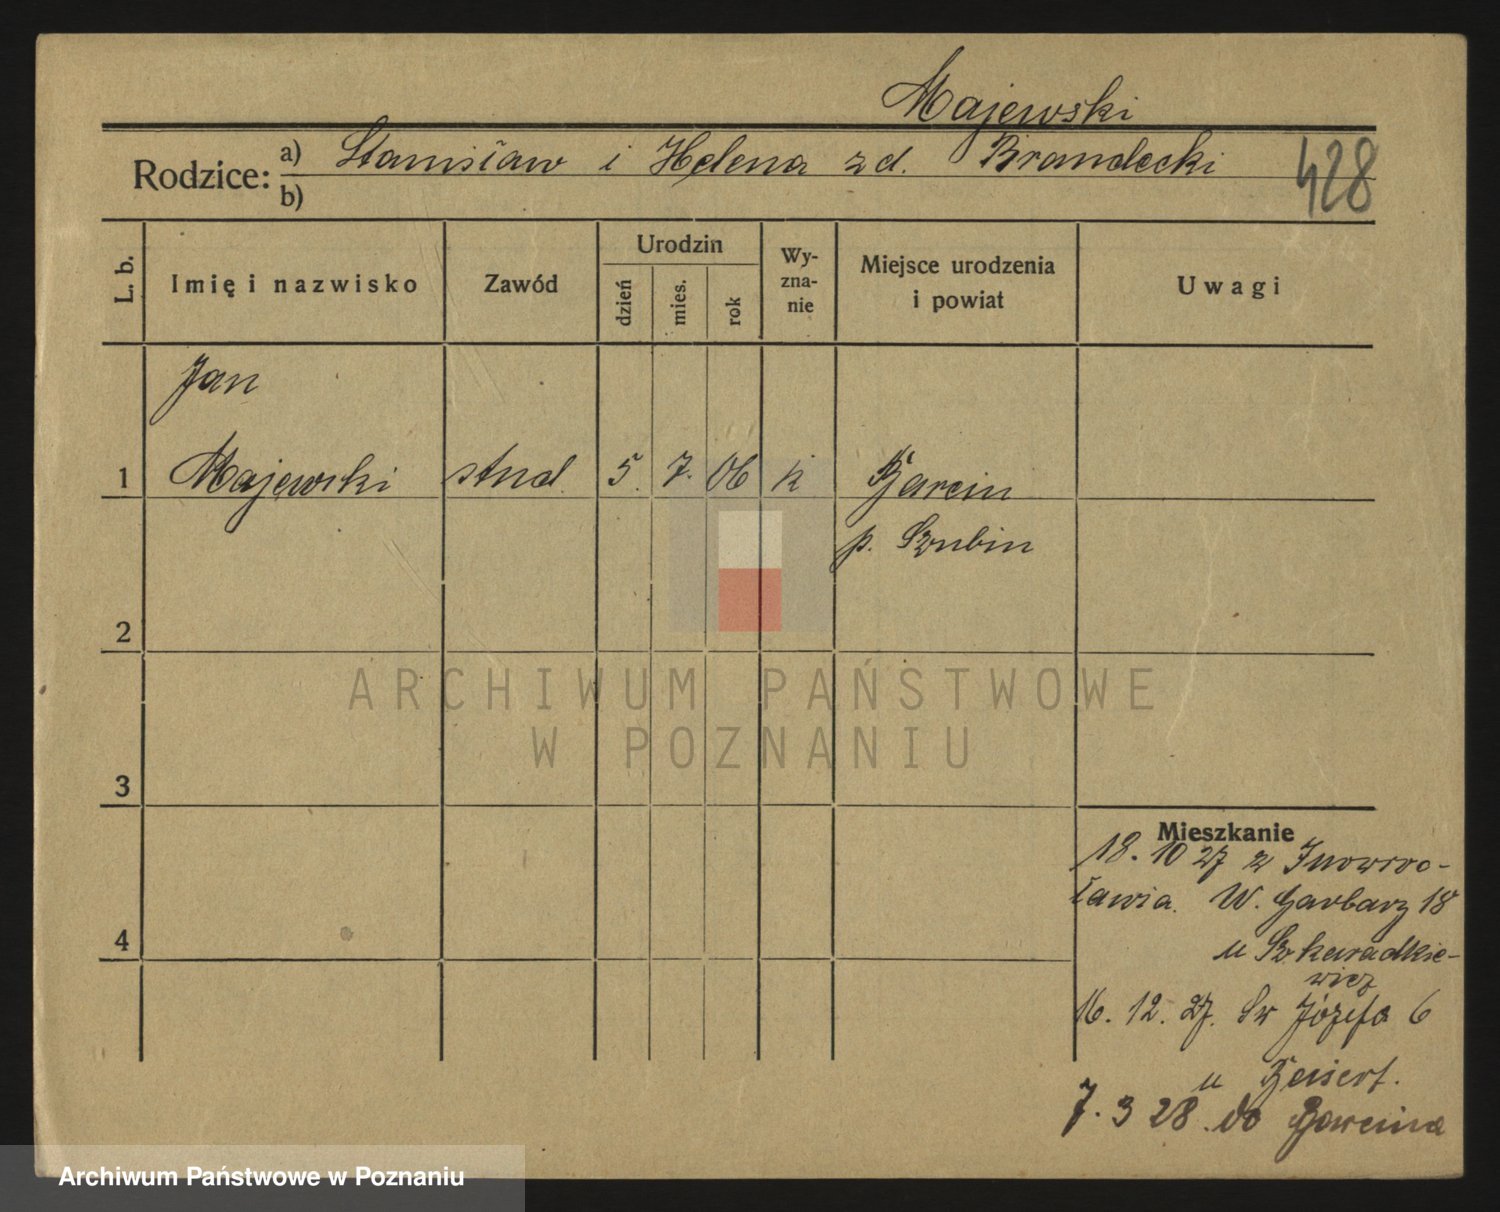 Majewski
Rodzice: a) Stanisław i Helena zd. Brandecki
b)
428
L. b. Imię i nazwisko Zawód Urodzin dzień mies. rok Wy-zna-nie Miejsce urodzenia i powiat Uwagi
Jan
1 Majewski stud. 5. 7. 06 k Barcin
p. Szubin
2
ARCHIWUM PAŃSTWOWE
W POZNANIU
3
Mieszkanie
18. 10 27 z Inowroc-
ławia. W. Garbary 18
4
u Szkaradkie-
wicz
16. 12. 27. Św Józefa 6
u
7. 3 28. do Barcina
Archiwum Państwowe w Poznaniu